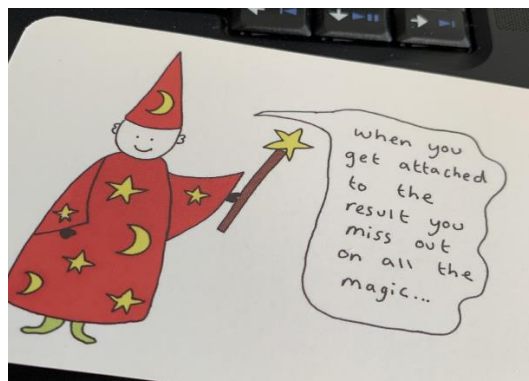 when you
get attached
to the
result you
miss out
on all the
magic...